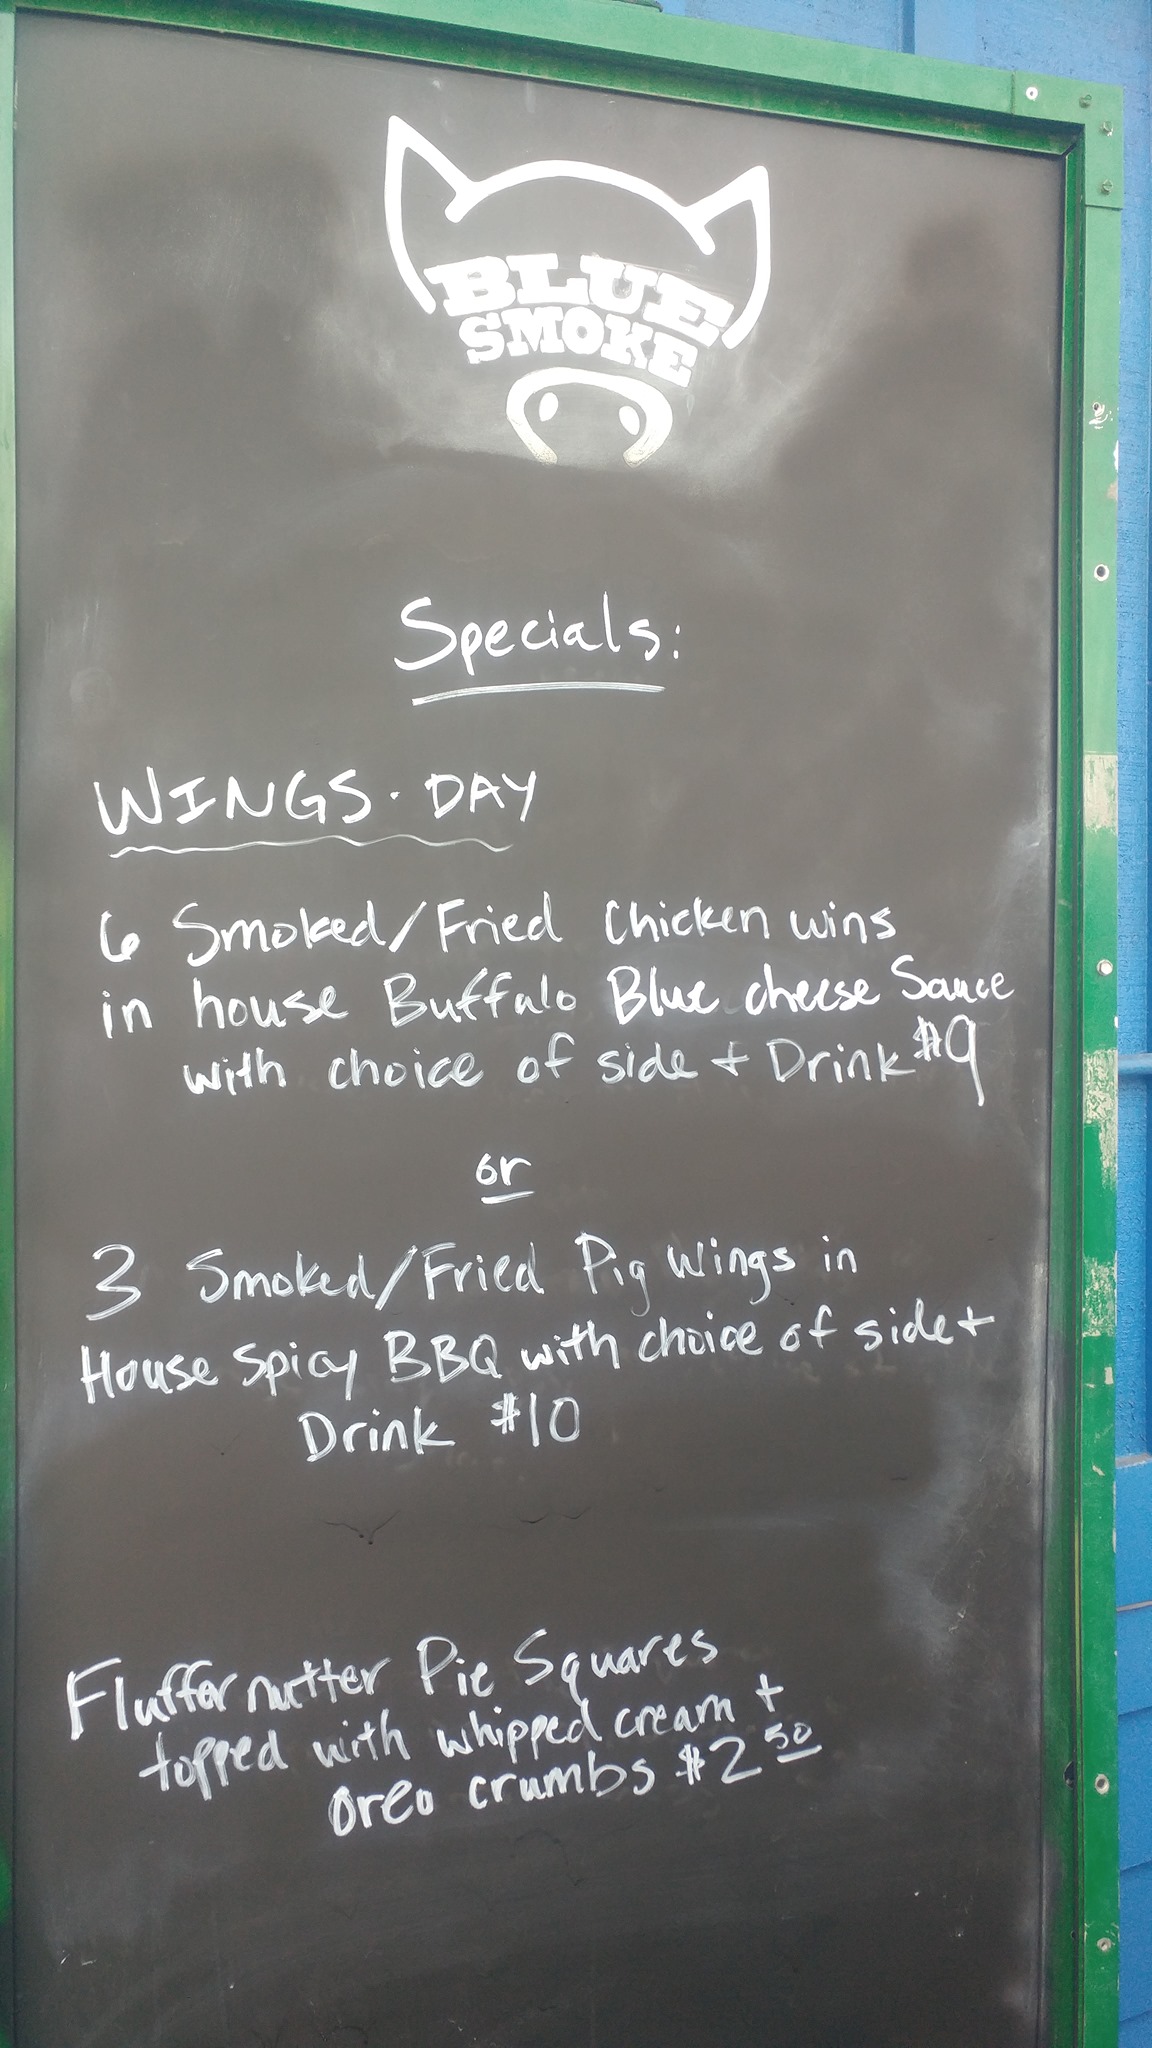 BLUE
SMOKE
Specials:
WINGS · DAY
6 Smoked/Fried Chicken wins
in house Buffalo Blue cheese Sauce
with choice of side + Drink $9
or
3 Smoked/Fried Pig Wings in
House Spicy BBQ with choice of side +
Drink $10
Fluffernutter Pie Squares
topped with whipped cream +
oreo crumbs $2 50